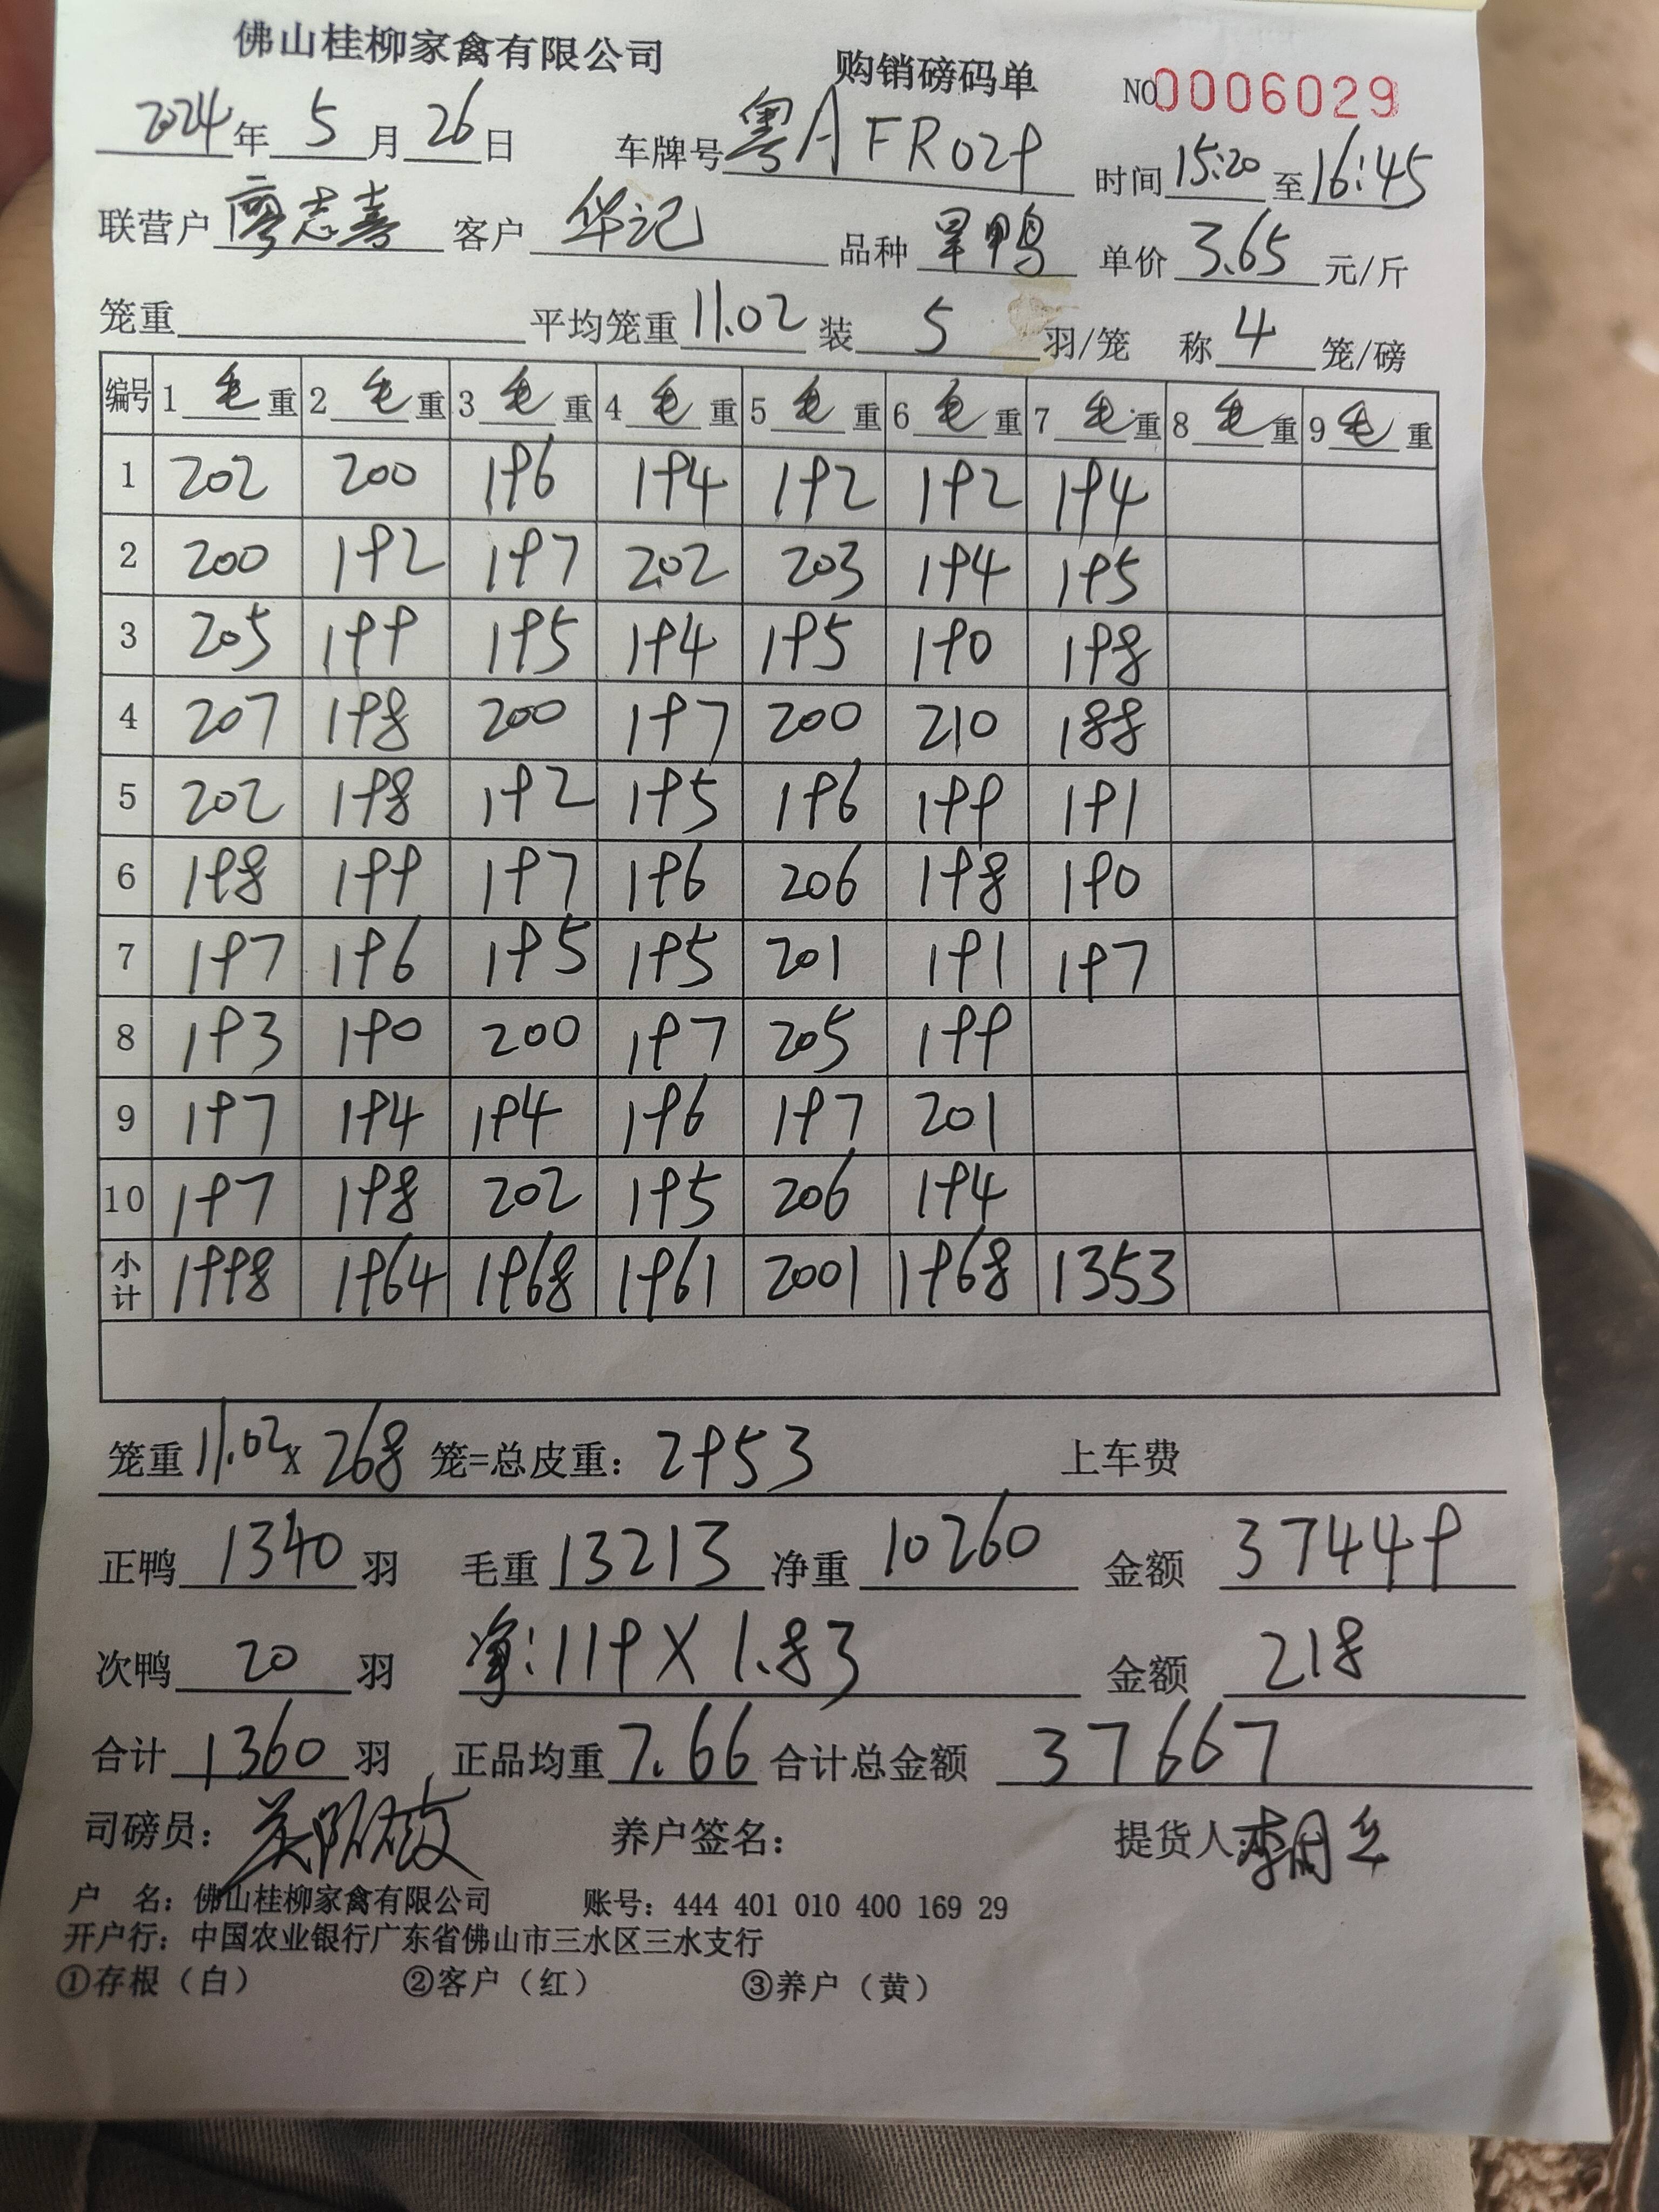 佛山桂柳家禽有限公司 购销磅码单 NO0006029
2024年5月26日 车牌号粤AFR029 时间15:20至16:45
联营户廖志喜 客户华记 品种旱鸭 单价3.65元/斤
笼重 平均笼重11.02装5羽/笼 称4笼/磅
编号 1毛重 2毛重 3毛重 4毛重 5毛重 6毛重 7毛重 8毛重 9毛重
1 202 200 196 194 192 192 194
2 200 192 197 202 203 194 195
3 205 199 195 194 195 190 198
4 207 198 200 197 200 210 188
5 202 198 192 195 196 199 191
6 198 199 197 196 206 198 190
7 197 196 195 195 201 191 197
8 193 190 200 197 205 199
9 197 194 194 196 197 201
10 197 198 202 195 206 194
小计 1998 1964 1968 1961 2001 1968 1353
笼重11.02x268笼=总皮重：2953 上车费
正鸭1340羽 毛重13213净重10260 金额37449
次鸭20羽 净:119X1.83 金额218
合计1360羽 正品均重7.66合计总金额37667
司磅员： 养户签名： 提货人:
户 名：佛山桂柳家禽有限公司 账号：444 401 010 400 169 29
开户行：中国农业银行广东省佛山市三水区三水支行
①存根（白） ②客户（红） ③养户（黄）